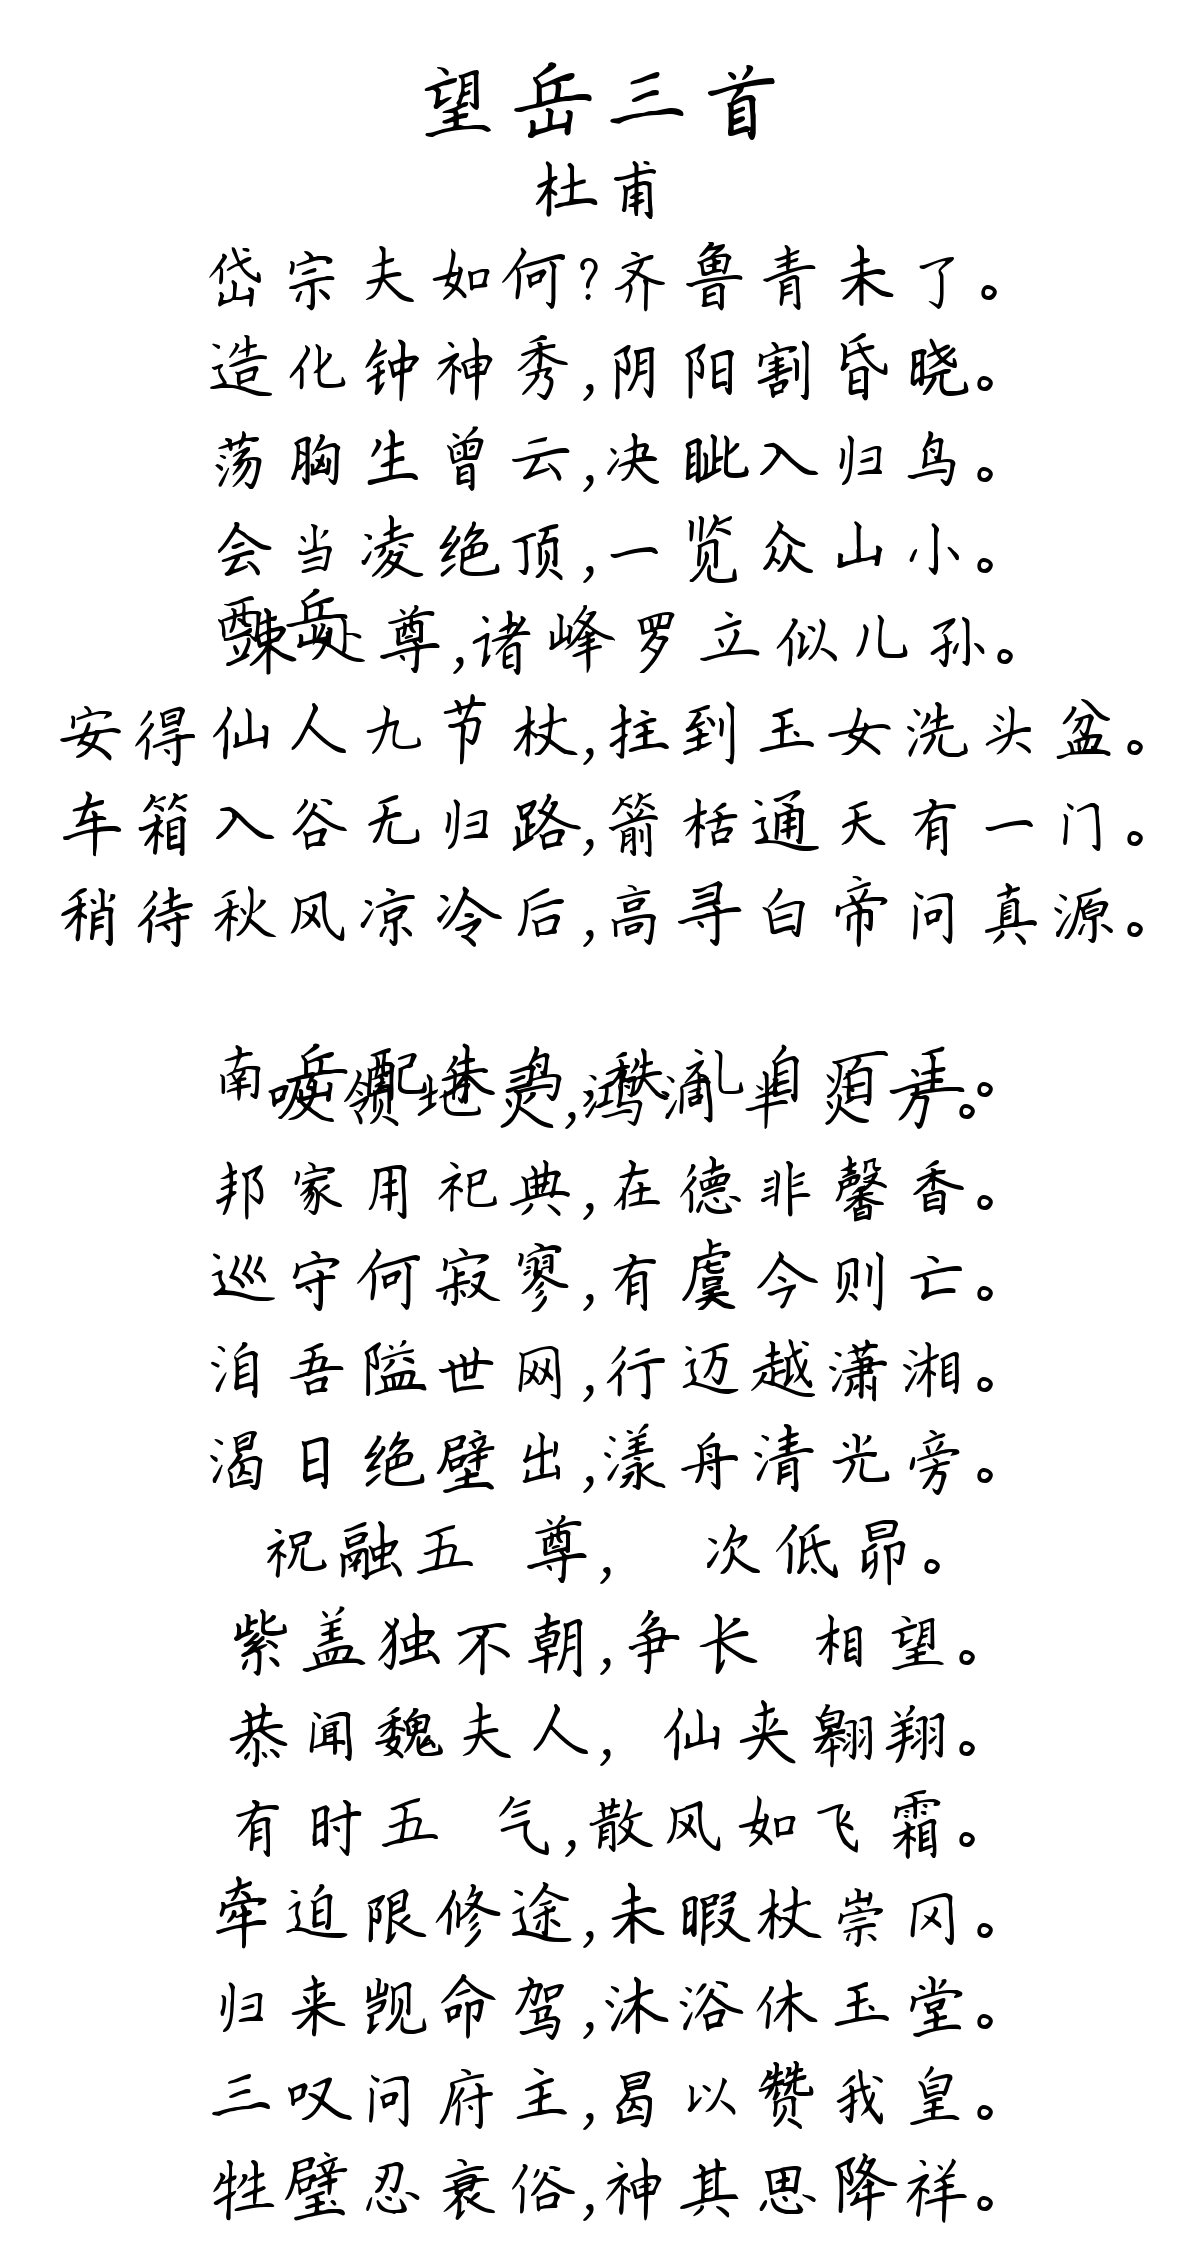 望岳三首
杜甫
岱宗夫如何?齐鲁青未了。
造化钟神秀,阴阳割昏晓。
荡胸生曾云,决眦入归鸟。
会当凌绝顶,一览众山小。
西岳
竦处尊,诸峰罗立似儿孙。
安得仙人九节杖,拄到玉女洗头盆。
车箱入谷无归路,箭栝通天有一门。
稍待秋风凉冷后,高寻白帝问真源。
南岳配朱鸟,秩礼自百王。
吸领地灵,鸿洞半炎方。
邦家用祀典,在德非馨香。
巡守何寂寥,有虞今则亡。
洎吾隘世网,行迈越潇湘。
渴日绝壁出,漾舟清光旁。
祝融五 尊, 次低昂。
紫盖独不朝,争长 相望。
恭闻魏夫人, 仙夹翱翔。
有时五 气,散风如飞霜。
牵迫限修途,未暇杖崇冈。
归来觊命驾,沐浴休玉堂。
三叹问府主,曷以赞我皇。
牲璧忍衰俗,神其思降祥。